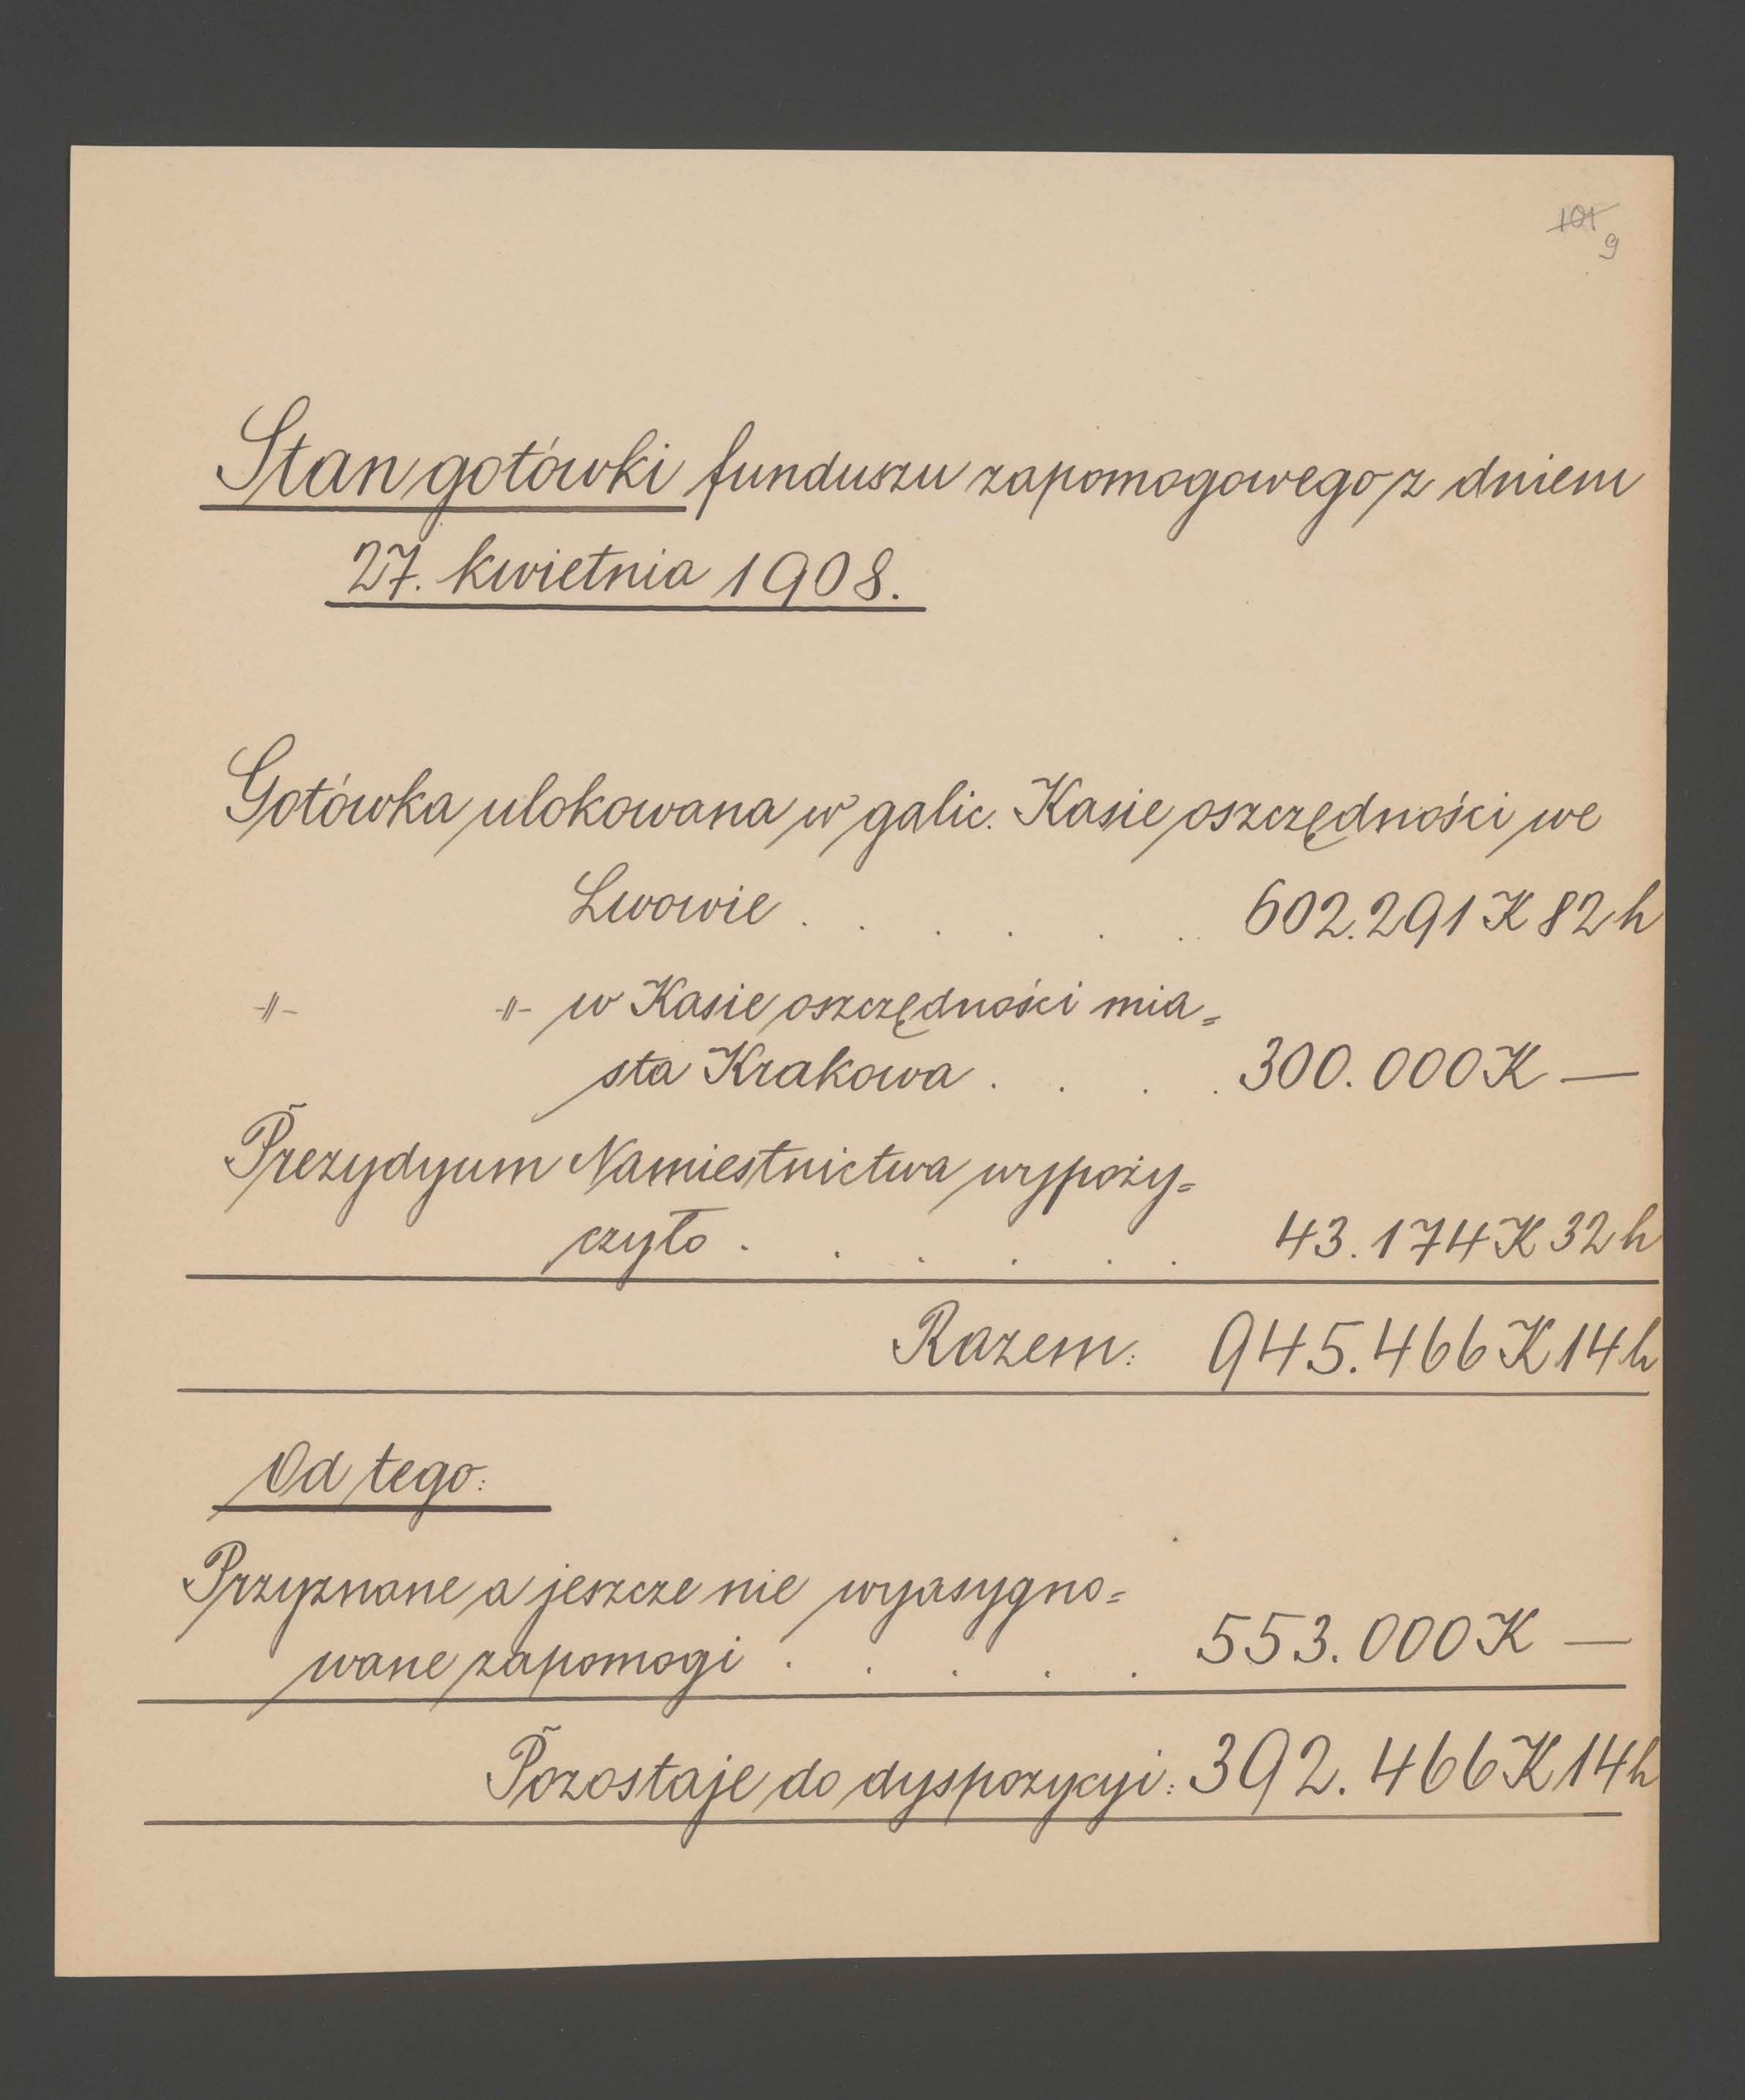 101
9
Stan gotówki funduszu zapomogowego z dniem
27. kwietnia 1908.
Gotówka ulokowana w galic. Kasie oszczędności we
Lwowie . . . . . . 602.291 K 82 h
-〃- -〃- w Kasie oszczędności mia=
sta Krakowa . . . . 300.000 K —
Prezydyum Namiestnictwa wypoży=
czyło . . . . . . 43.174 K 32 h
Razem: 945.466 K 14 h
Od tego:
Przyznane a jeszcze nie wyasygno=
wane zapomogi . . . . . 553.000 K —
Pozostaje do dyspozycyi: 392.466 K 14 h